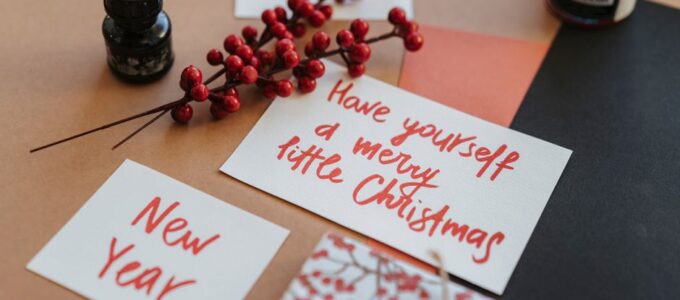 Have yourself
a merry
little Christmas
New
Year